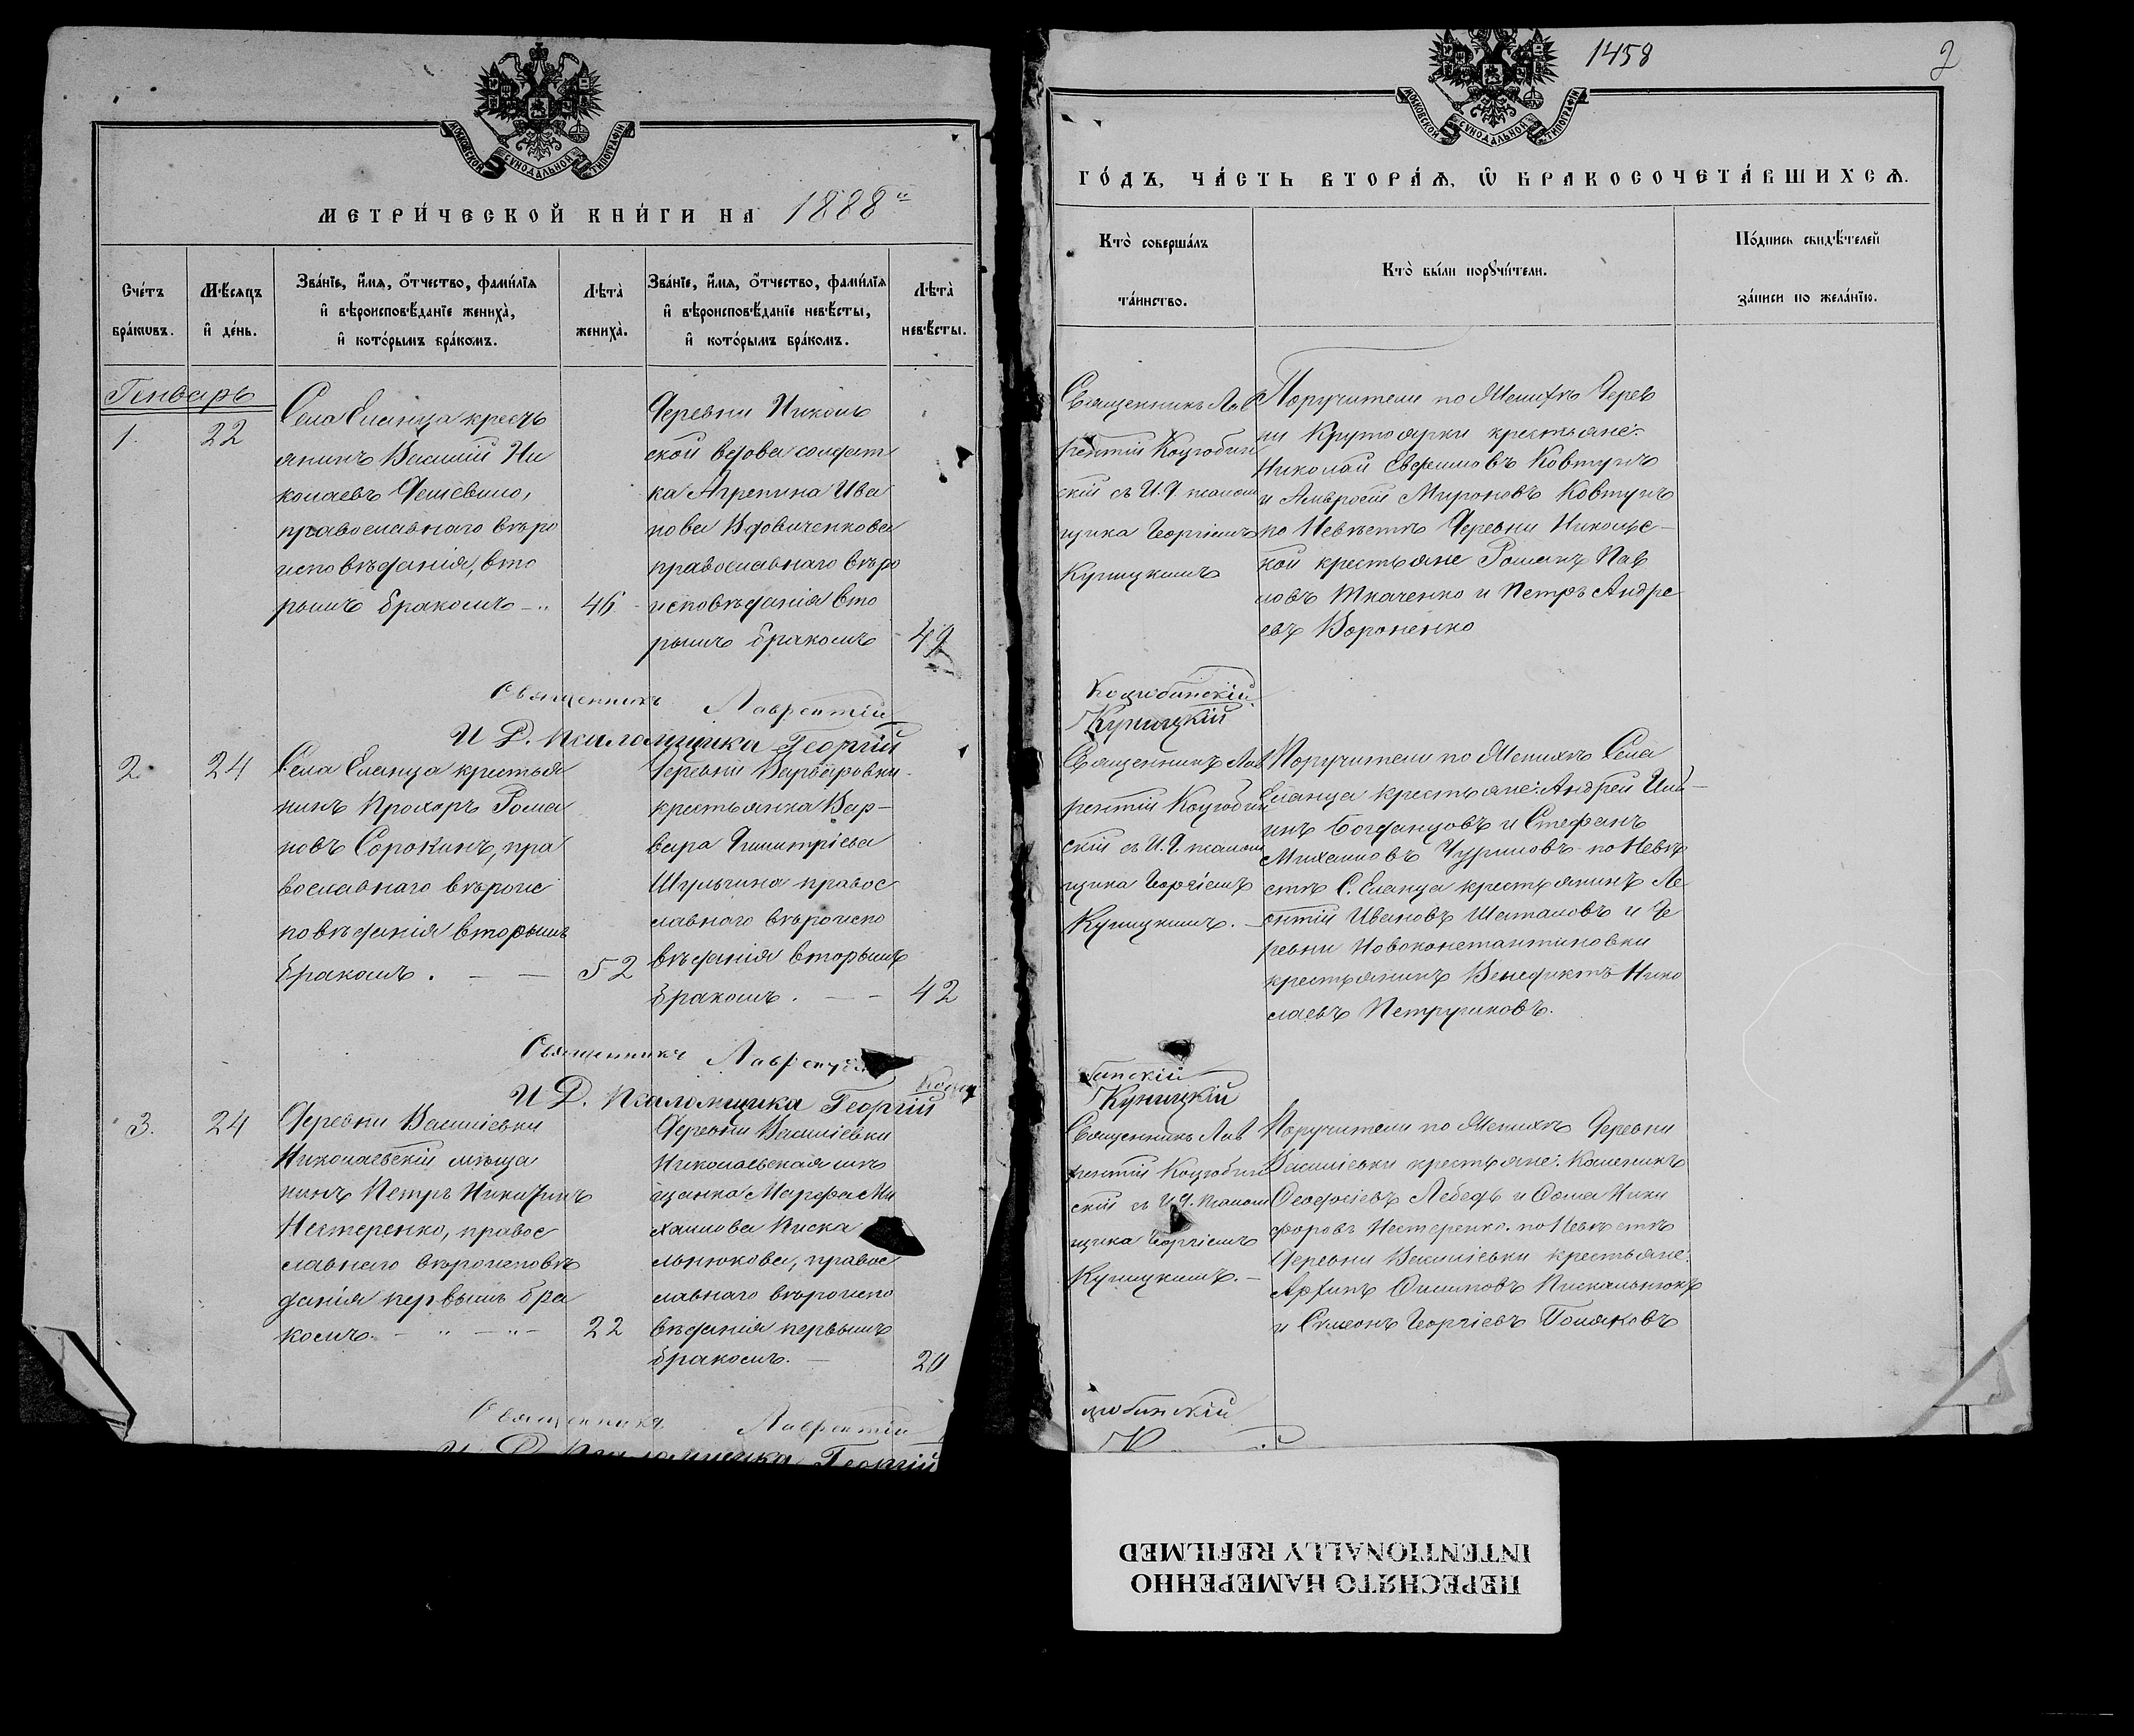 МОСКОВСКОЙ СѴНОДАЛЬНОЙ ТИПОГРАФІИ
МЕТРИ́ЧЕСКОЙ КНИ́ГИ НА 1888й
Сче́тъ бра́кѡвъ.
Мѣ́сяцъ и҆ де́нь.
Зва́нїе, и҆́мя, ѻ҆́тчество, фами́лїя
и҆ вѣроисповѣ́данїе женихà,
и҆ кото́рымъ бра́комъ.
Лѣтà женихà.
Зва́нїе, и҆́мя, ѻ҆́тчество, фами́лїя
и҆ вѣроисповѣ́данїе невѣ́сты,
и҆ кото́рымъ бра́комъ.
Лѣтà невѣ́сты.
Генварь
1.
22
Села Еланца кресть
янинъ Василий Ни
колаевъ
православнаго вѣро
исповѣданія, вто
рымъ бракомъ
46
Деревни Николь
ской вдова солдат
ка Агрепина Ива
нова Вдовиченкова
православнаго вѣро
исповѣданія вто
рымъ бракомъ
49
Священникъ Лаврентій
И Д. Псаломщика Георгій
2.
24
Села Еланца крестья
нинъ Прохоръ Рома
новъ Сорокинъ, пра
вославнаго вѣроис
повѣданія вторымъ
бракомъ.
52
Деревни Варваровки
крестьянка Вар-
вара Димитріева
Шульгина правос
лавнаго вѣроиспо
вѣданія вторымъ
бракомъ.
42
Священникъ Лаврентій
И Д. Псаломщика Георгій
3.
24
Деревни Василіевки
Николаевскій мѣща
нинъ Петръ Никитинъ
Нестеренко, правос
лавнаго вѣроисповѣ
данія первымъ бра
комъ.
22
Деревни Василіевки
Николаевская мѣ
щанка Марфа Ми
хаилова Писка
льнюкова, правос
лавнаго вѣроиспо
вѣданія первымъ
бракомъ.
20
Священникъ Лаврентій
И Д Псаломщика Георгій
1458
2
МОСКОВСКОЙ СѴНОДАЛЬНОЙ ТИПОГРАФІИ
ГО́ДЪ, ЧА́СТЬ ВТОРА́Ѧ, Ѡ҆ БРАКОСОЧЕТА́ВШИХСѦ.
Ктò соверша́лъ
та́инство.
Ктò бы́ли порꙋчи́тели.
По́дпись свидѣ́телей
за́писи по жела́нїю.
Священникъ Лав
рентій Коцюбин
скій съ И. Д. псалом
щика Георгіемъ
Куницкимъ
Поручители по Женихѣ Дерев
ни Крутоярки крестьяне:
Николай Евфимовъ Ковтунъ
и Амвросій Мироновъ Ковтунъ
по Невѣстѣ Деревни Никольс-
кой крестьяне Романъ Пав
ловъ Ткаченко и Петръ Андре
евъ Вороненко
Коцюбинскій
Куницкій
Священникъ Лав
рентій Коцюбин
скій съ И. Д. псалом
щика Георгіемъ
Куницкимъ.
Поручители по Женихѣ Села
Еланца крестьяне: Андрей Иль-
инъ Богданцовъ и Стефанъ
Михаиловъ Чуриловъ по Невѣ
стѣ С. Еланца крестьянинъ Ле
онтій Ивановъ Шаталовъ и Де
ревни Новоконстантиновки
крестьянинъ Венедиктъ Нико
лаевъ
бинскій
Куницкій
Священникъ Лав
рентій Коцюбин
скій съ И. Д. Псалом
щика Георгіемъ
Куницкимъ.
Поручители по Женихѣ Деревни
Василіевки крестьяне: Каленикъ
Феодосіевъ Лебедь и Фома Ники
форовъ Нестеренко. по Невѣстѣ
Деревни Василіевки крестьяне:
Филиповъ Пискальнюкъ
и Симеонъ Георгіевъ Поляковъ
цюбинскій
ПЕРЕСНЯТО НАМЕРЕННО
INTENTIONALLY REFILMED